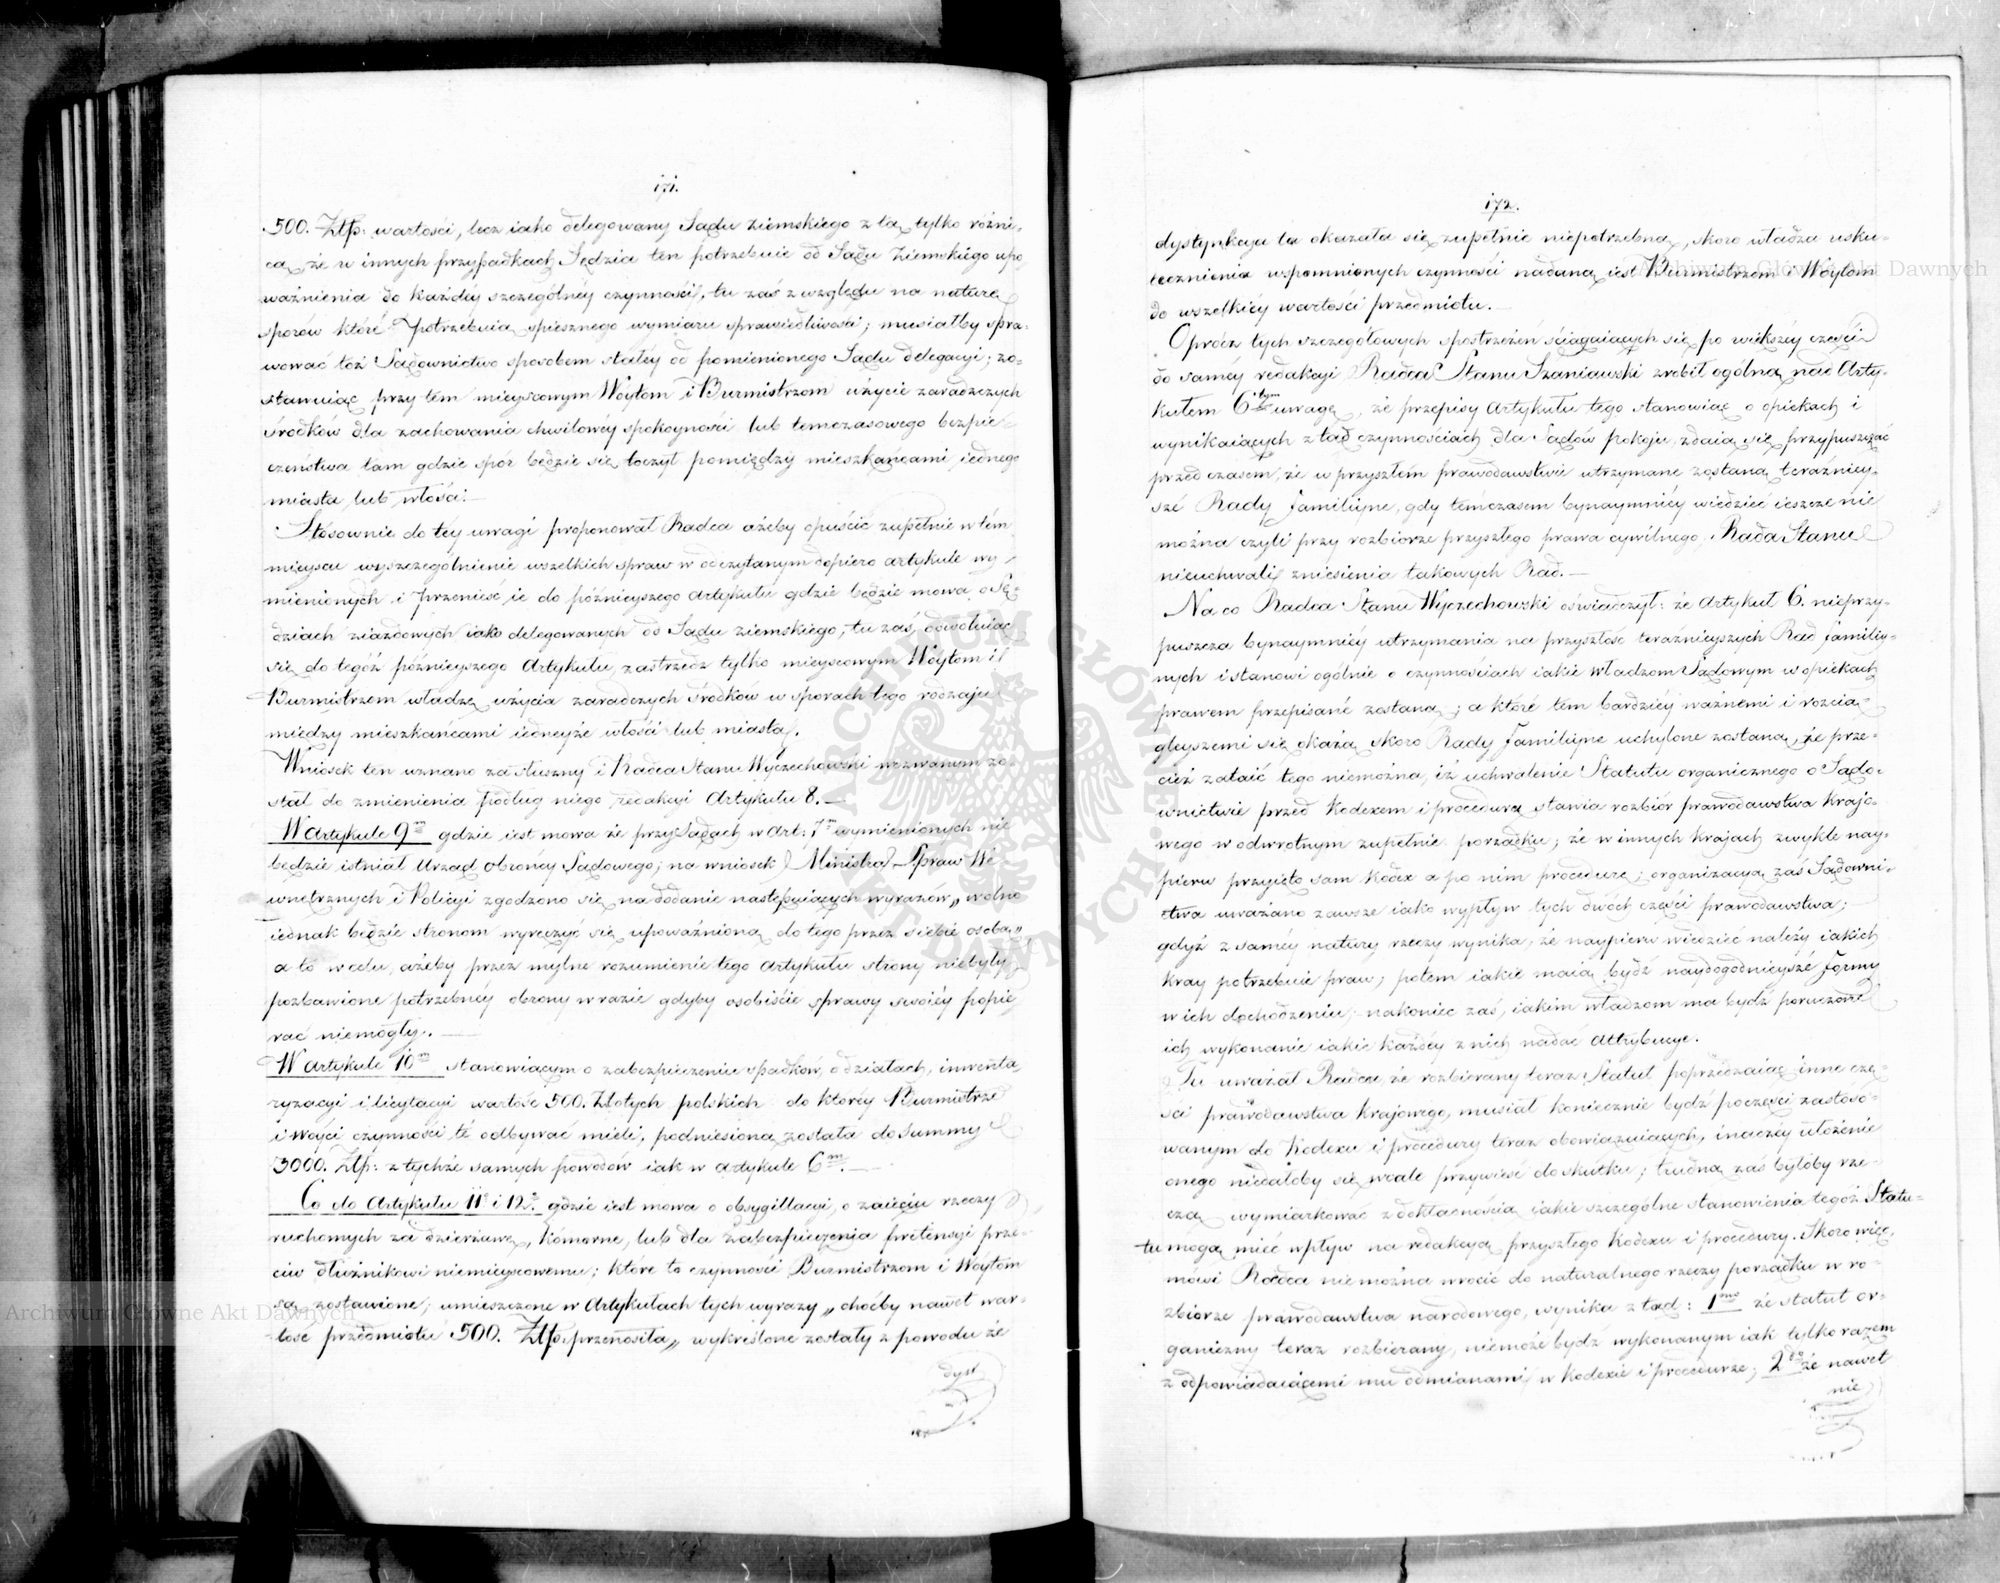 171.
500. Złtp. wartości, lecz iako delegowany Sądu Ziemskiego z tą tylko różni-
cą, że w innych przypadkach Sędzia ten potrzebuie od Sądu Ziemskiego upo-
ważnienia do każdéy szczególnéy czynności, tu zaś z względu na naturę
sporów które potrzebuią spiesznego wymiaru sprawiedliwości; musiałby spra-
wować toż Sądownictwo sposobem stałéy od pomienionego Sądu delegacyi; zo-
stawuiąc przy tém mieyscowym Wóytom i Burmistrzom użycie zaradczych
środków dla zachowania chwilowéy spokoyności lub temczasowego bezpie-
czeństwa tam gdzie spór będzie się toczył pomiędzy mieszkańcami iednego
miasta lub włości.—
Stosownie do téy uwagi proponował Radca ażeby opuścić zupełnie w tém
mieyscu wyszczególnienie wszelkich spraw w odczytanym dopiero artykule wy-
mienionych i przenieść ie do późnieyszego artykułu gdzie będzie mowa o Sę-
dziach ziazdowych iako delegowanych od Sądu ziemskiego, tu zaś, odwołuiąc
się do tegóż późnieyszego Artykułu, zastrzedz tylko mieyscowym Wóytom i
Burmistrzom władzę użycia zaradczych środków w sporach tego rodzaju
między mieszkańcami iedneyże włości lub miasta.
Wniosek ten uznano za słuszny i Radca Stanu Wyczechowski wezwanym zo-
stał do zmienienia podług niego redakcyi Artykułu 8.—
W Artykule 9m gdzie iest mowa że przy Sądach w art: 1m wymienionych nie
będzie istniał Urząd Obrońcy Sądowego; na wniosek Ministra Spraw We-
wnętrznych i Policyi zgodzono się na dodanie następuiących wyrazów „wolno
iednak będzie stronom wyręczyć się upoważnioną do tego przez siebie osobą„
a to w celu, ażeby przez mylne rozumienie tego Artykułu strony niebyły
pozbawione potrzebnéy obrony w razie gdyby osobiście sprawy swoiéy popie-
rać niemogły.—
W artykule 10m stanowiącym o zabezpieczeniu spadków, o działach, inwenta-
ryzacyi i licytacyi wartość 500. Złotych polskich do któréy Burmistrze
i Wóyci czynności te odbywać mieli, podniesioną została do Summy
3000. Złtp: z tychże samych powodów iak w artykule 6m.—
Co do Artykułu 11o i 12o. gdzie iest mowa o obsygillacyi, o zaięciu rzeczy
ruchomych za dzierżawę, komorne, lub dla zabezpieczenia pretensyi prze-
ciw dłużnikowi niemieyscowemu; które to czynności Burmistrzom i Wóytom
są zostawione; umieszczone w Artykułach tych wyrazy „choćby nawet war-
tość przedmiotu 500. Złtp. przenosiła„ wykreślone zostały z powodu że
dyst
172.
dystynkcya ta okazała się zupełnie niepotrzebną, skoro władza usku-
tecznienia wspomnionych czynności nadaną iest Burmistrzom i Wóytom
do wszelkiéy wartości przedmiotu.—
Oprócz tych szczegółowych spostrzeżeń ściągaiących się po większéy części
do saméy redakcyi Radca Stanu Szaniawski zrobił ogólną nad Arty-
kułem 6tym uwagę, że przepisy Artykułu tego stanowiąc o opiekach i
wynikaiących z tąd czynnościach dla Sądów Pokoju zdaią się przypuszczać
przed czasem, że w przyszłem prawodawstwie utrzymane zostaną teraźniey-
szé Rady familiyne, gdy temczasem bynaymniéy wiedzieć ieszcze nie
można czyli przy rozbiorze przyszłego prawa cywilnego Rada Stanu
nieuchwali zniesienia takowych Rad.—
Na co Radca Stanu Wyczechowski oświadczył: że Artykuł 6. nieprzy-
puszcza bynaymniéy utrzymania na przyszłość teraźnieyszych Rad familiy-
nych i stanowi ogólnie o czynnościach iakie Władzom Sądowym w opiekach
prawem przepisané zostaną; a które tém bardziéy ważnemi i rozcią-
gleyszemi się okażą skoro Rady familiyne uchylone zostaną, że prze-
cież zataić tego niemożna, iż uchwalenie Statutu organicznego o Sądo-
wnictwie przed Kodexem i procedurą stawia rozbiór prawodawstwa krajo-
wego w odwrotnym zupełnie porządku; że w innych krajach zwykle nay-
pierw przyięto sam Kodex a po nim procedurę; organizacyą zaś Sądowni-
ctwa uważano zawsze iako wypływ tych dwóch części prawodawstwa;
gdyż z saméy natury rzeczy wynika, że naypierw wiedzieć należy iakich
kray potrzebuie praw; potem iakie maią bydź naydogodnieyszé formy
w ich dochodzeniu; nakoniec zaś, iakim władzom ma bydź poruczone
ich wykonanie i iakie każdéy z nich nadać attrybucye.
Tu uważał Radca, że rozbierany teraz Statut poprzedzaiąc inne czę-
ści prawodawstwa krajowego, musiał koniecznie bydź po części zastoso-
wanym do Kodexu i procedury teraz obowiązuiących, inaczéy ułożenie
onego niedałoby się wcale przywieść do skutku; trudną zaś byłoby rze-
czą wymiarkować z dokładnością iakie szczególne stanowienia tegóż Statu-
tu mogą mieć wpływ na redakcyą przyszłego Kodexu i procedury. Skoro więc,
mówi Radca niemożna wrócić do naturalnego rzeczy porządku w ro-
zbiorze prawodawstwa narodowego, wynika z tąd: 1mo że statut or-
ganiczny teraz rozbierany, niemoże bydź wykonanym iak tylko razem
z odpowiadaiącemi mu odmianami w Kodexie i procedurze; 2do że nawet
nie
Archiwum Główne Akt Dawnych
Archiwum Główne Akt Dawnych
ARCHIWUM GŁÓWNE AKT DAWNYCH